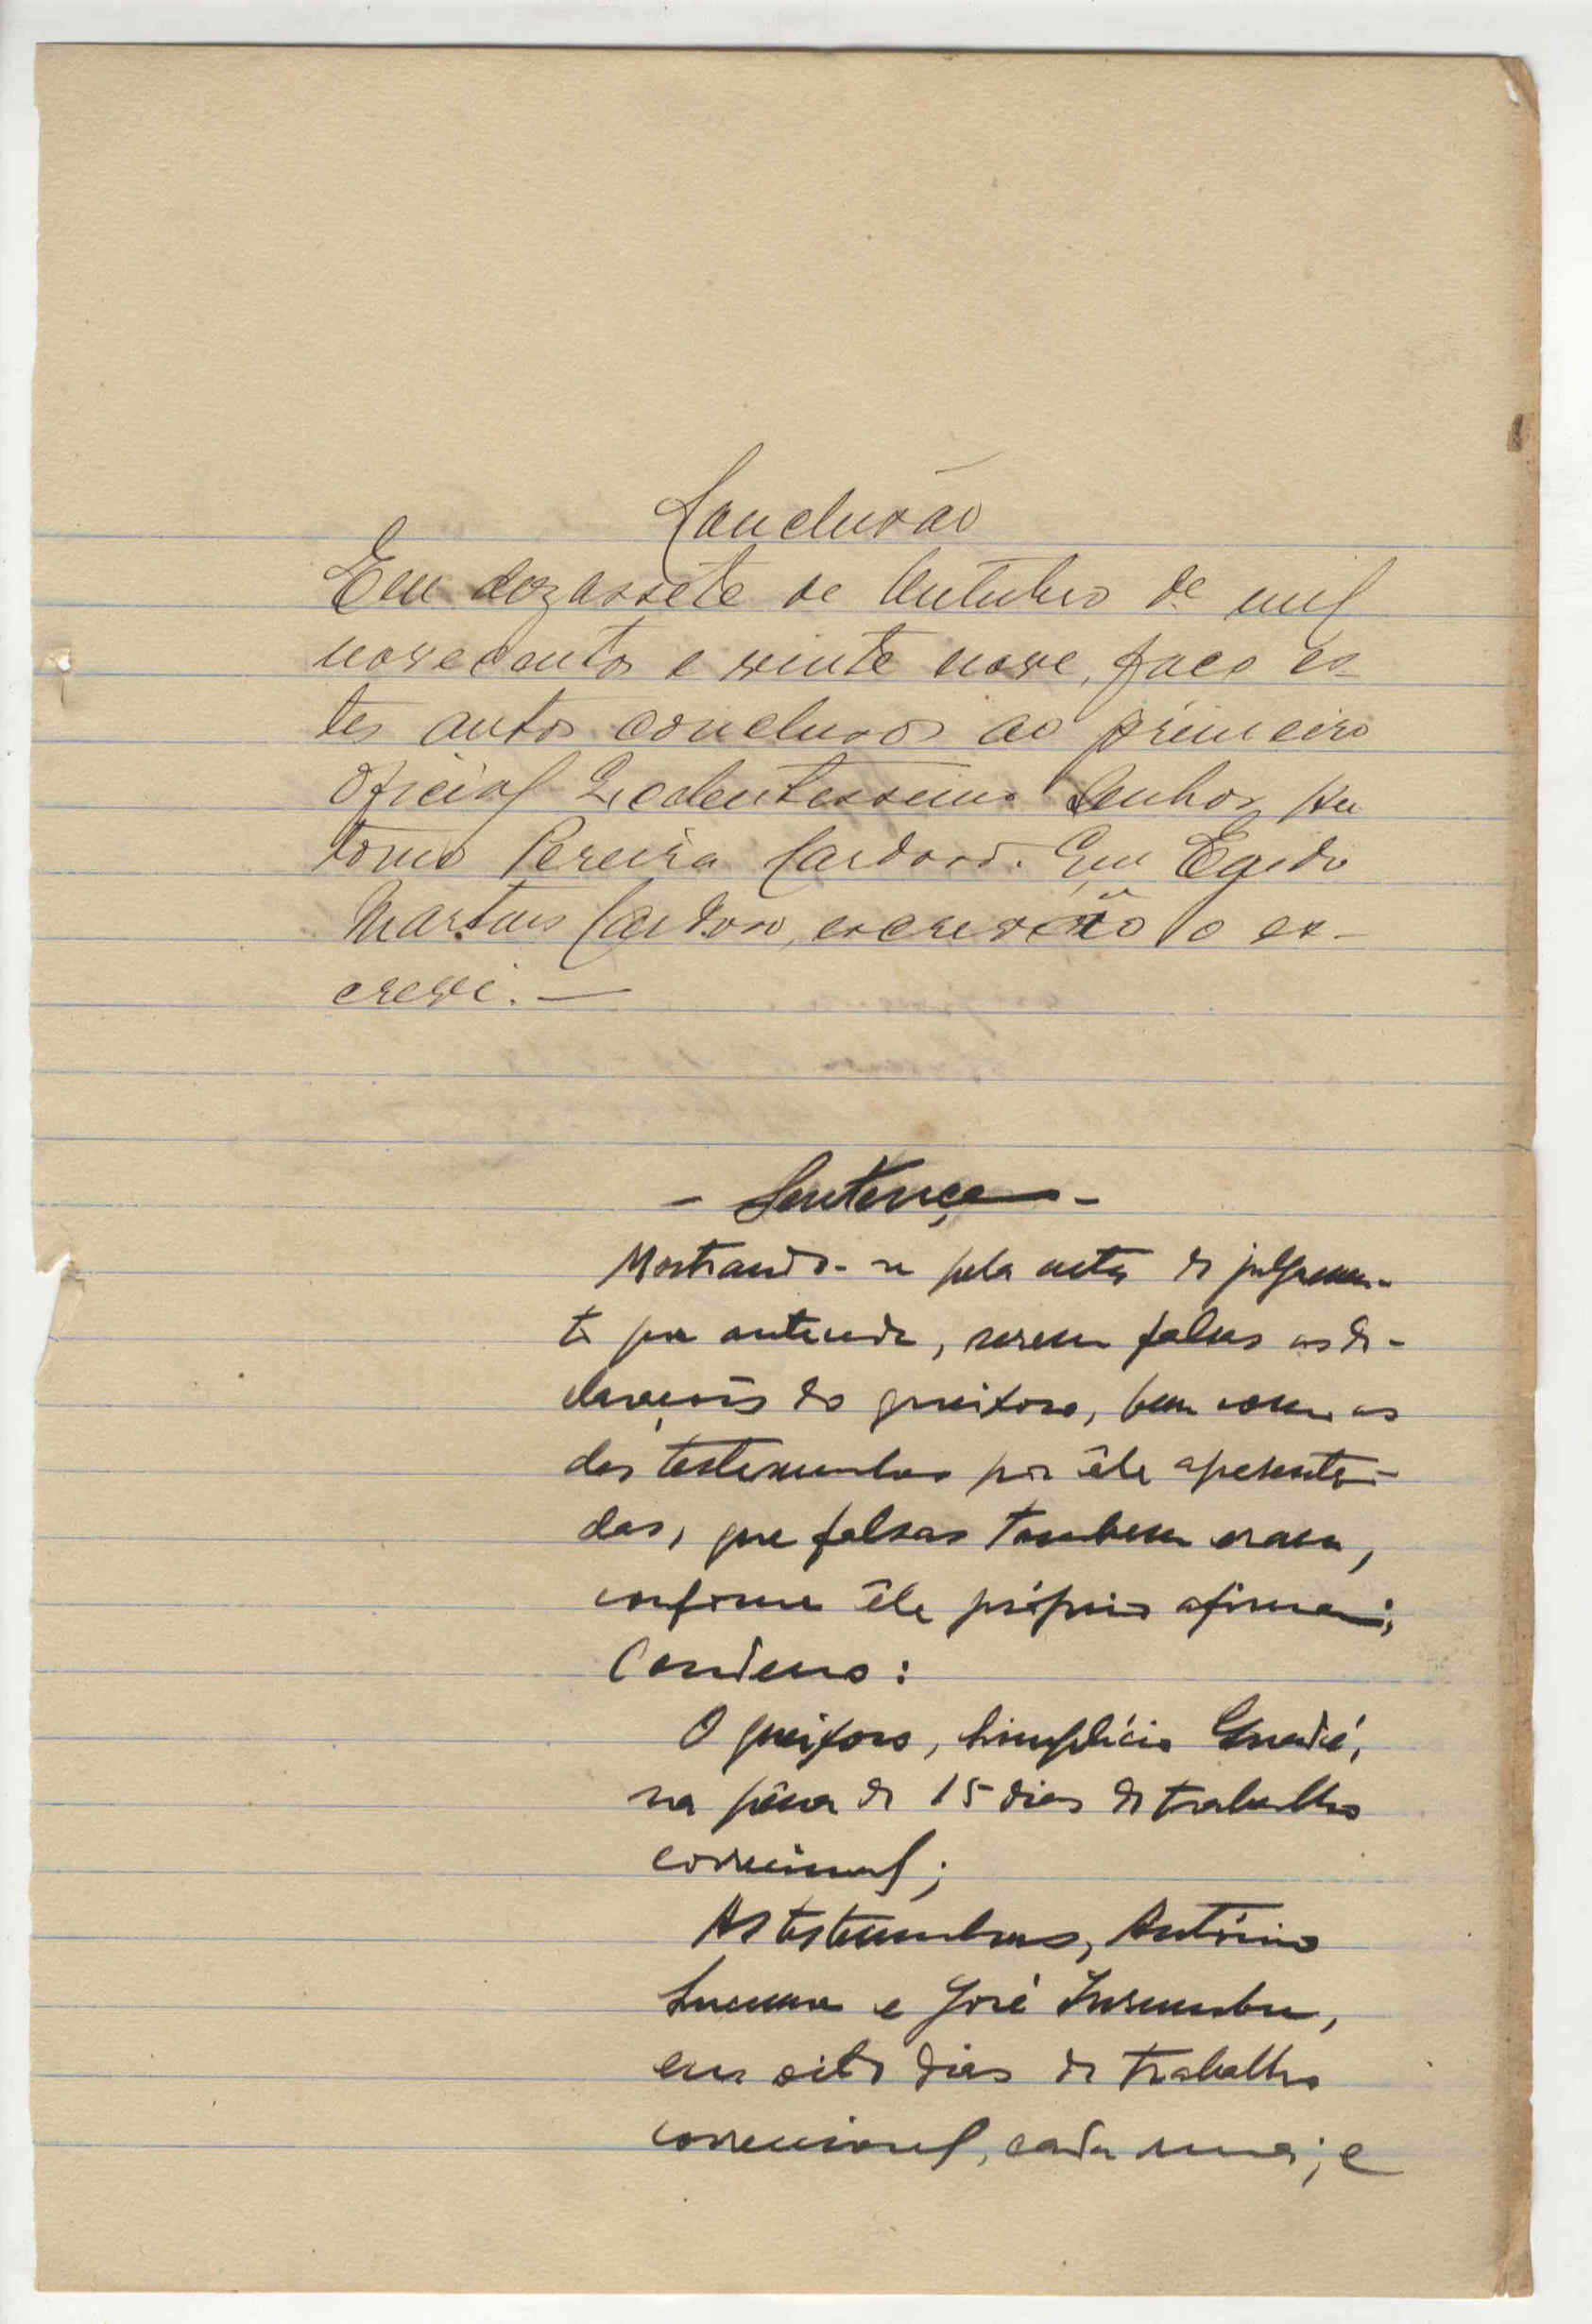 Conclusão
Em dezassete de Outubro de mil
novecentos e vinte nove, faço es-
tes autos conclusos ao primeiro
oficial Excelentessimo Senhor An
tonio Pereira Cardoso. Eu Egido
Martins Cardoso, escrevão o es-
crevi. —
- Sentença -
Mostrando-se pela acta do julgamen-
to que antecede, serem falsas as de-
clarações do queixoso, bem como as
das testemunhas por êle apresenta-
das, que falsas tambem eram,
conforme êle próprio afirma;
Condeno:
O queixoso, Simplício
na pêna de 15 dias de trabalho
correcional;
As testemunhas, António
e José
em oito dias de trabalho
correcional, cada uma; e